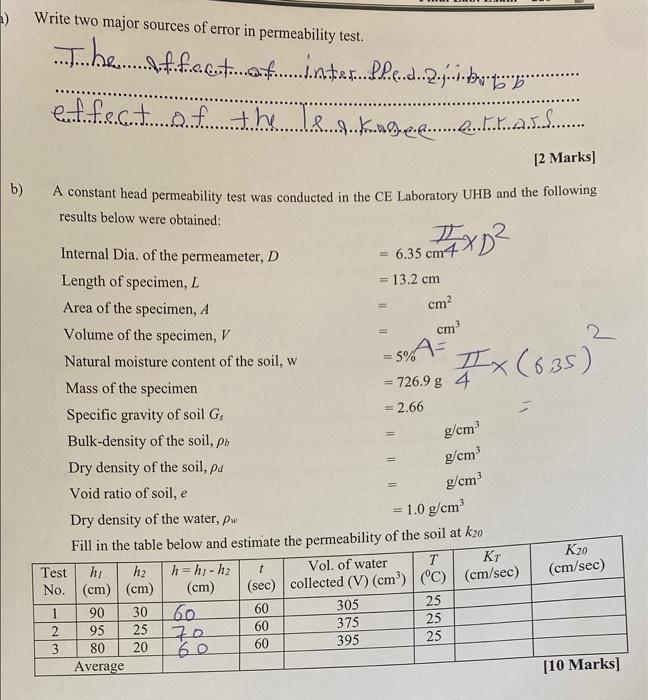 a) Write two major sources of error in permeability test.
The effect of
effect of the errors
[2 Marks]
b) A constant head permeability test was conducted in the CE Laboratory UHB and the following
results below were obtained:
Internal Dia. of the permeameter, D = 6.35 cm π/4 × D²
Length of specimen, L = 13.2 cm
Area of the specimen, A = cm²
Volume of the specimen, V = cm³
Natural moisture content of the soil, w = 5% A= π/4 × (6.35)²
Mass of the specimen = 726.9 g
Specific gravity of soil Gs = 2.66 =
Bulk-density of the soil, ρb = g/cm³
Dry density of the soil, ρd = g/cm³
Void ratio of soil, e = g/cm³
Dry density of the water, ρw = 1.0 g/cm³
Fill in the table below and estimate the permeability of the soil at k20
Test No. h1 (cm) h2 (cm) h = h1 - h2 (cm) t (sec) Vol. of water collected (V) (cm³) T (⁰C) KT (cm/sec) K20 (cm/sec)
1 90 30 60 60 305 25
2 95 25 70 60 375 25
3 80 20 60 60 395 25
Average
[10 Marks]